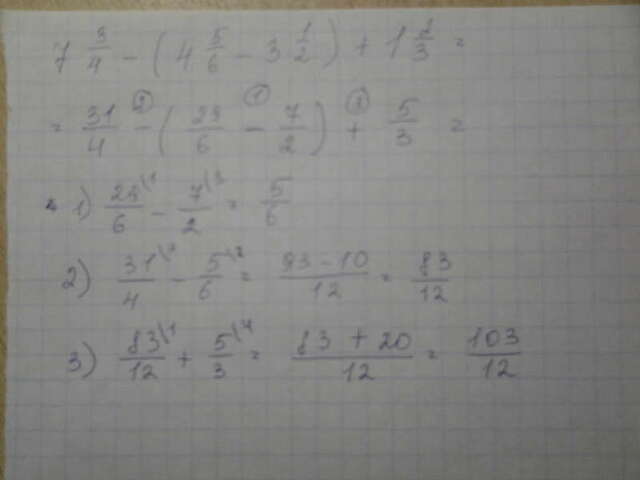 7 3/4 - (4 5/6 - 3 1/2) + 1 2/3 =
= 31/4 -② (29/6 -① 7/2) +③ 5/3 =
1) 29\1/6 - 7\3/2 = 5/6
2) 31\3/4 - 5\2/6 = 93-10/12 = 83/12
3) 83\1/12 + 5\4/3 = 83+20/12 = 103/12